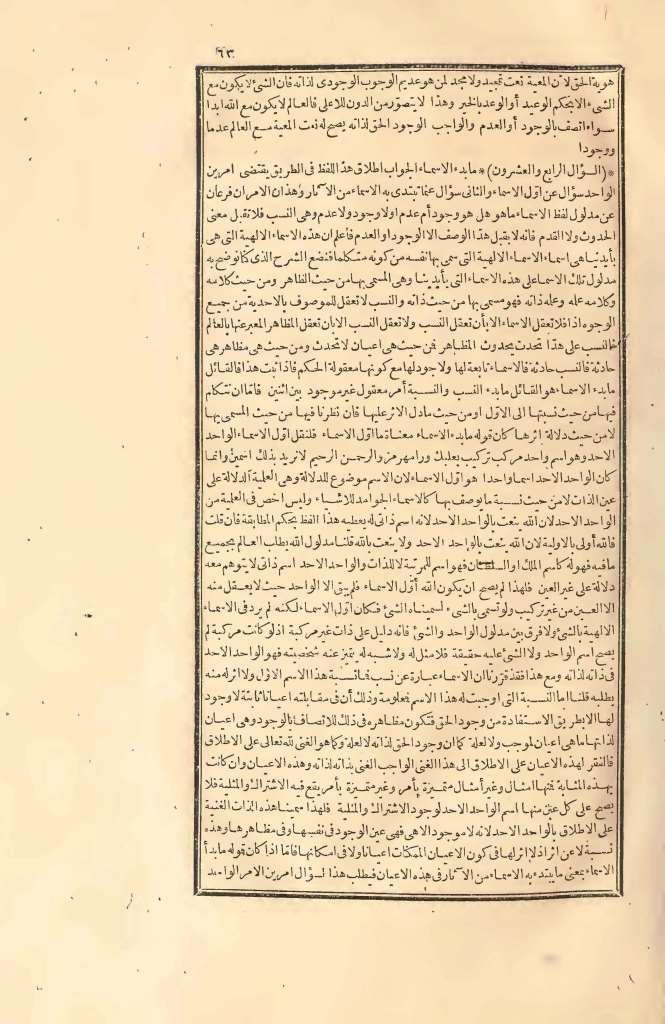 ٦٣
هوية الحق لان المعية نعت تمجيد ولا مجد لمن هو عديم الوجوب الوجودى لذاته فان الشئ لا يكون مع
الشىء الا بحكم الوعيد أو الوعد بالخير وهذا لا يتصور من الدون للاعلى فالعالم لا يكون مع الله ابدا
سواء اتصف بالوجود أو العدم والواجب الوجود الحق لذاته يصح له نعت المعية مع العالم عدما
ووجودا
*(السؤال الرابع والعشرون)* ما بدء الاسماء الجواب اطلاق هذا اللفظ فى الطريق يقتضى امرين
الواحد سؤال عن اول الاسماء والثانى سؤال عما تبتدى به الاسماء من الآثار وهذان الامران فرعان
عن مدلول لفظ الاسماء ما هو هل هو وجود أم عدم او لا وجود ولا عدم وهى النسب فلا تقبل معنى
الحدوث ولا القدم فانه لا يقبل هذا الوصف الا الوجود او العدم فاعلم ان هذه الاسماء الالهية التى هى
بأيدينا هى اسماء الاسماء الالهية التى سمى بها نفسه من كونه متكلما فنضع الشرح الذى كنا نوضح به
مدلول تلك الاسماء على هذه الاسماء التى بأيدينا وهى المسمى بها من حيث الظاهر ومن حيث كلامه
وكلامه علمه وعلمه ذاته فهو مسمى بها من حيث ذاته والنسب لا تعقل للموصوف بالاحدية من جميع
الوجوه اذا فلا تعقل الاسماء الا بأن تعقل النسب ولا تعقل النسب الا بان تعقل المظاهر المعبر عنها بالعالم
فالنسب على هذا تحدث بحدوث المظاهر فمن حيث هى اعيان لا تحدث ومن حيث هى مظاهر هى
حادثة فالنسب حادثة فالاسماء تابعة لها ولا وجود لها مع كونها معقولة الحكم فاذا ثبت هذا فالقائل
ما بدء الاسماء هو القائل ما بدء النسب والنسبة أمر معقول غير موجود بين اثنين فاما ان نتكلم
فيها من حيث نسبتها الى الاول او من حيث ما دل الاثر عليها فان نظرنا فيها من حيث المسمى بها
لا من حيث دلالة اثرها كان قوله ما بدء الاسماء معناه ما اول الاسماء فلنقل اول الاسماء الواحد
الاحد وهو اسم واحد مركب تركيب بعلبك ورامهرمز والرحمن الرحيم لا نريد بذلك اسمين وانما
كان الواحد الاحد اسما واحدا هو اول الاسماء لان الاسم موضوع للدلالة وهى العلمية الدلالة على
عين الذات لا من حيث نسبة ما يوصف بها كالاسماء الجوامد للاشياء وليس اخص فى العلمية من
الواحد الاحد لان الله ينعت بالواحد الاحد لانه اسم ذاتى له يعطيه هذا اللفظ بحكم المطابقة فان قلت
فالله أولى بالاولية لان الله ينعت بالواحد الاحد ولا ينعت بالله قلنا مدلول الله يطلب العالم بجميع
ما فيه فهو له كاسم الملك او السلطان فهو اسم للمرتبة لا للذات والواحد الاحد اسم ذاتى لا يتوهم معه
دلالة على غير العين فلهذا لم يصح ان يكون الله أول الاسماء فلم يبق الا الواحد حيث لا يعقل منه
الا العين من غير تركيب ولو تسمى بالشىء لسميناه الشئ فكان اول الاسماء لكنه لم يرد فى الاسماء
الالهية بالشئ ولا فرق بين مدلول الواحد والشئ فانه دليل على ذات غير مركبة اذ لو كانت مركبة لم
يصح اسم الواحد ولا الشئ عليه حقيقة فلا مثل له ولا شبه له يتميز عنه شخصيته فهو الواحد الاحد
فى ذاته لذاته ومع هذا فقد قررنا ان الاسماء عبارة عن نسب فما نسبة هذا الاسم الاول ولا اثر له منه
يطلبه قلنا اما النسبة التى اوجبت له هذا الاسم فعلومة وذلك أن فى مقابلته اعيانا ثابتة لا وجود
لها الا بطريق الاستفادة من وجود الحق فتكون مظاهره فى ذلك للاتصاف بالوجود وهى اعيان
لذاتها ما هى اعيان لموجب ولا لعلة كما ان وجود الحق لذاته لا لعلة وكما هو الغنى لله تعالى على الاطلاق
فالفقر لهذه الاعيان على الاطلاق الى هذا الغنى الواجب الغنى بذاته لذاته وهذه الاعيان وان كانت
بهذه المثابة فمنها امثال وغير أمثال متميزة بأمر وغير متميزة بأمر يقع فيه الاشتراك والمثلية فلا
يصح على كل عين منها اسم الواحد الاحد لوجود الاشتراك والمثلية فلهذا سمينا هذه الذات الغنية
على الاطلاق بالواحد الاحد لانه لا موجود الا هى فهى عين الوجود فى نفسها وفى مظاهرها وهذه
نسبة لا عن اثر اذ لا اثر لها فى كون الاعيان الممكنات اعيانا ولا فى امكانها فاما اذا كان قوله ما بدأ
الاسماء بمعنى ما يبتدء به الاسماء من الآثار فى هذه الاعيان فيطلب هذا السؤال امرين الامر الواحد